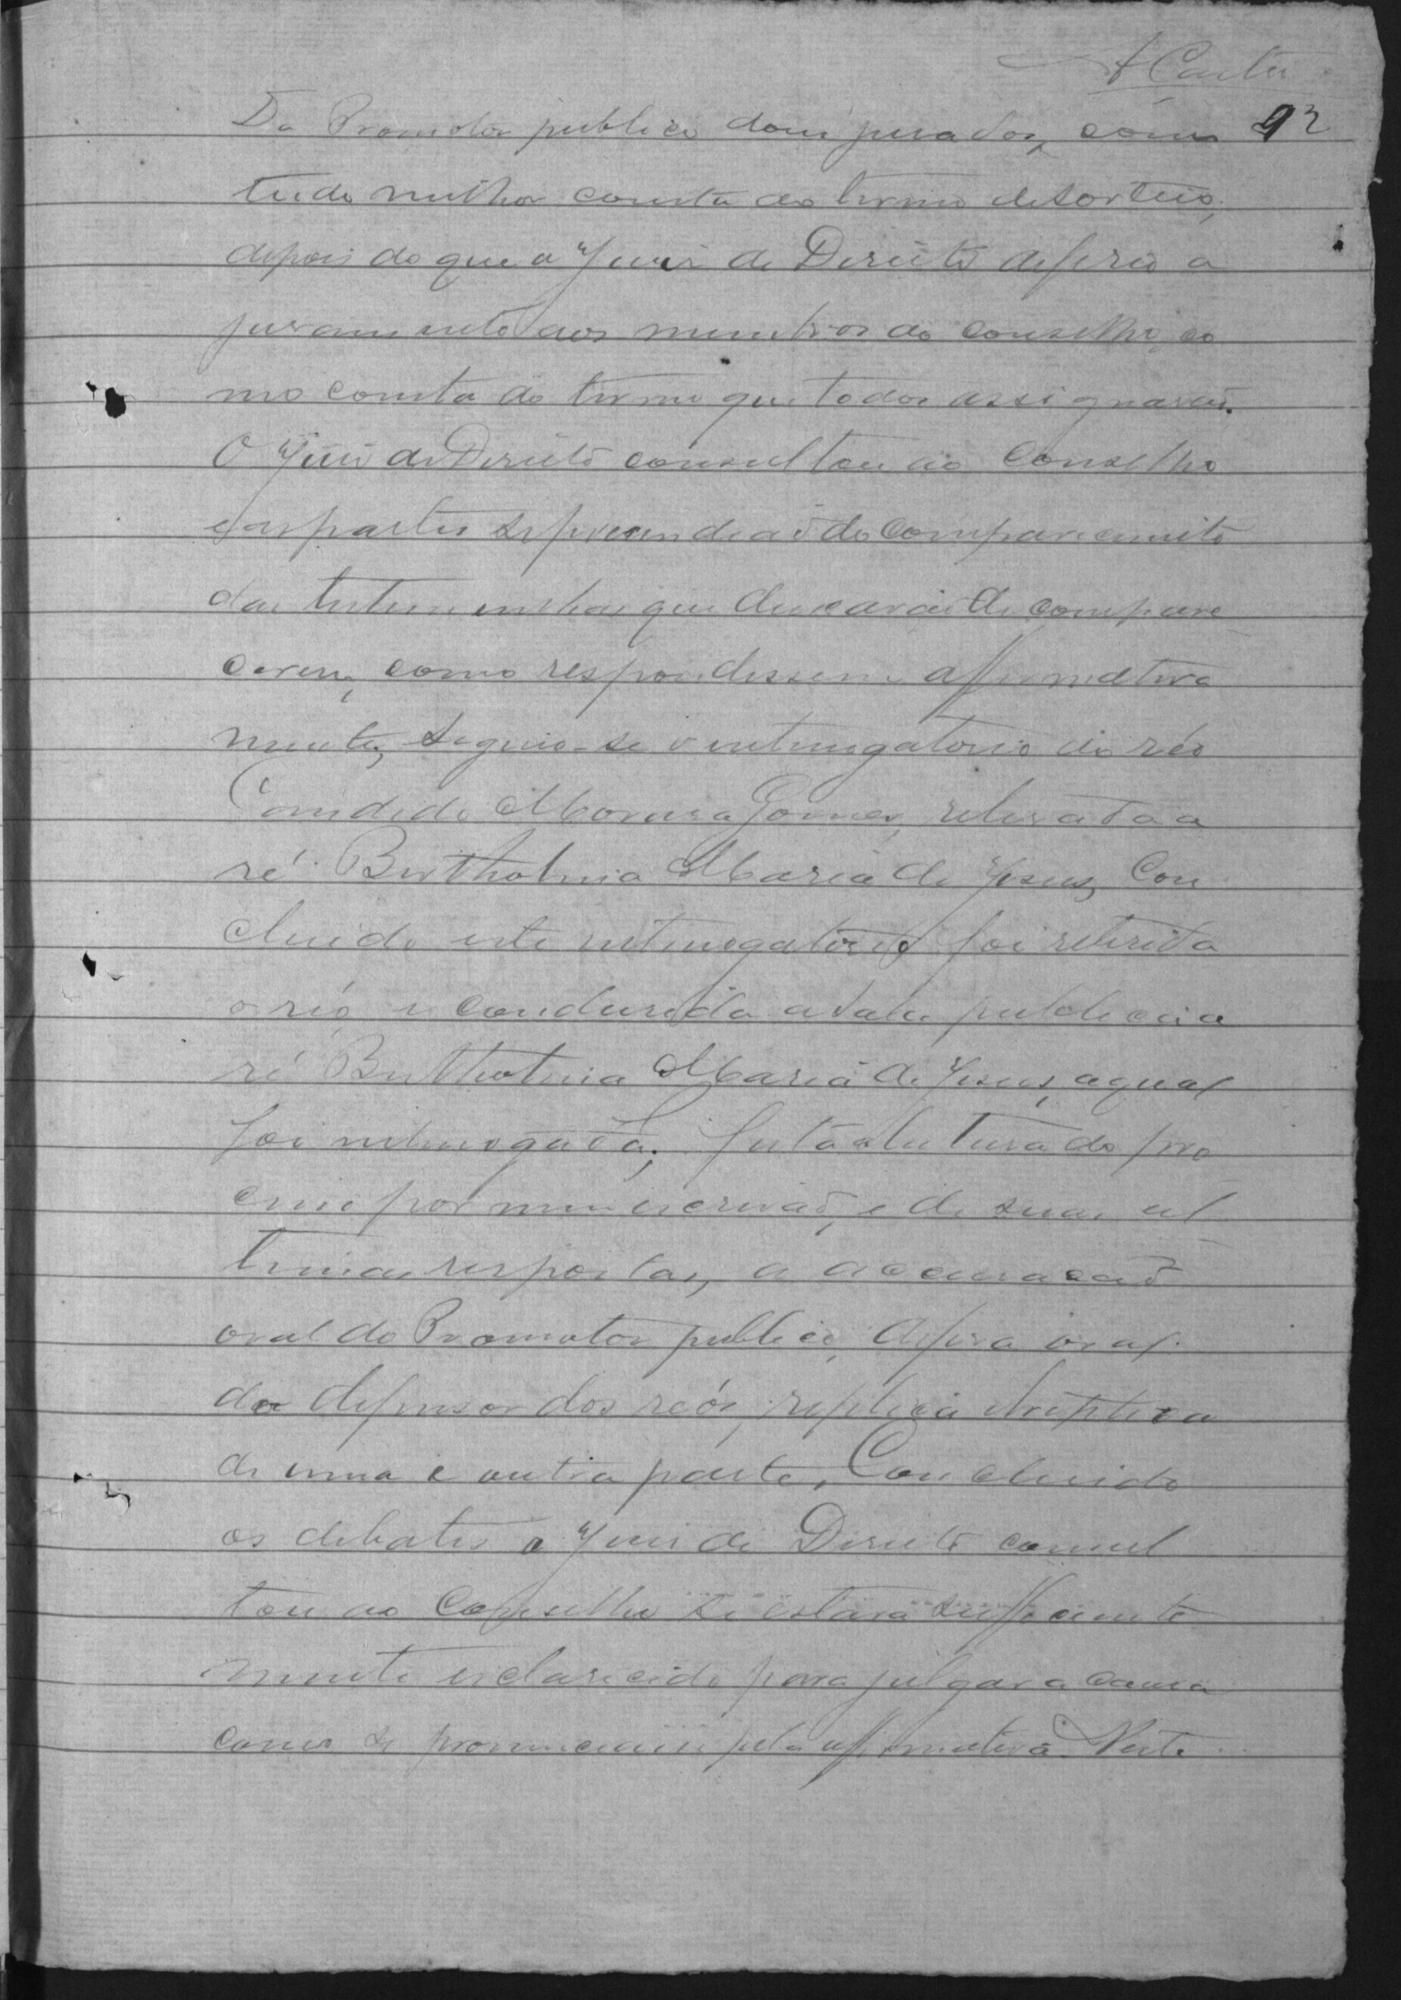 92
Do Promotor publico dous jurados, como
tudo milhor consta do termo de sorteio;
depois do que o Juis de Direito deferio o
juramento aos membros do conselho, co
mo consta do termo que todos assignarão.
O Juis de Direito consultou ao Conselho
e as partes se prescindião do comparecimento
das testimunhas que deixarão de compare
cerem, como respondessem affirmativa
mente, seguio-se o interrogatorio do réo
Candido Moreira Gomes, retirada a
ré Bertholina Maria de Jesus, Con
cluido este interrogatorio foi retirado
o réo, e condusida a sala publica a
ré Bertholina Maria de Jesus, a qual
foi interrogada; feita a leitura do pro
cesso por mim escrivão, e de suas ul
timas respostas, a accusação
oral do Promotor publico, defesa oral
do defensor dos reós, replica e treplica
de uma e outra parte, Concluido
os debates o Juis de Direito consul
tou ao Conselho se estava sufficiente
mente esclarecido para julgar a causa
como se pronunciasse pela affirmativa. Neste